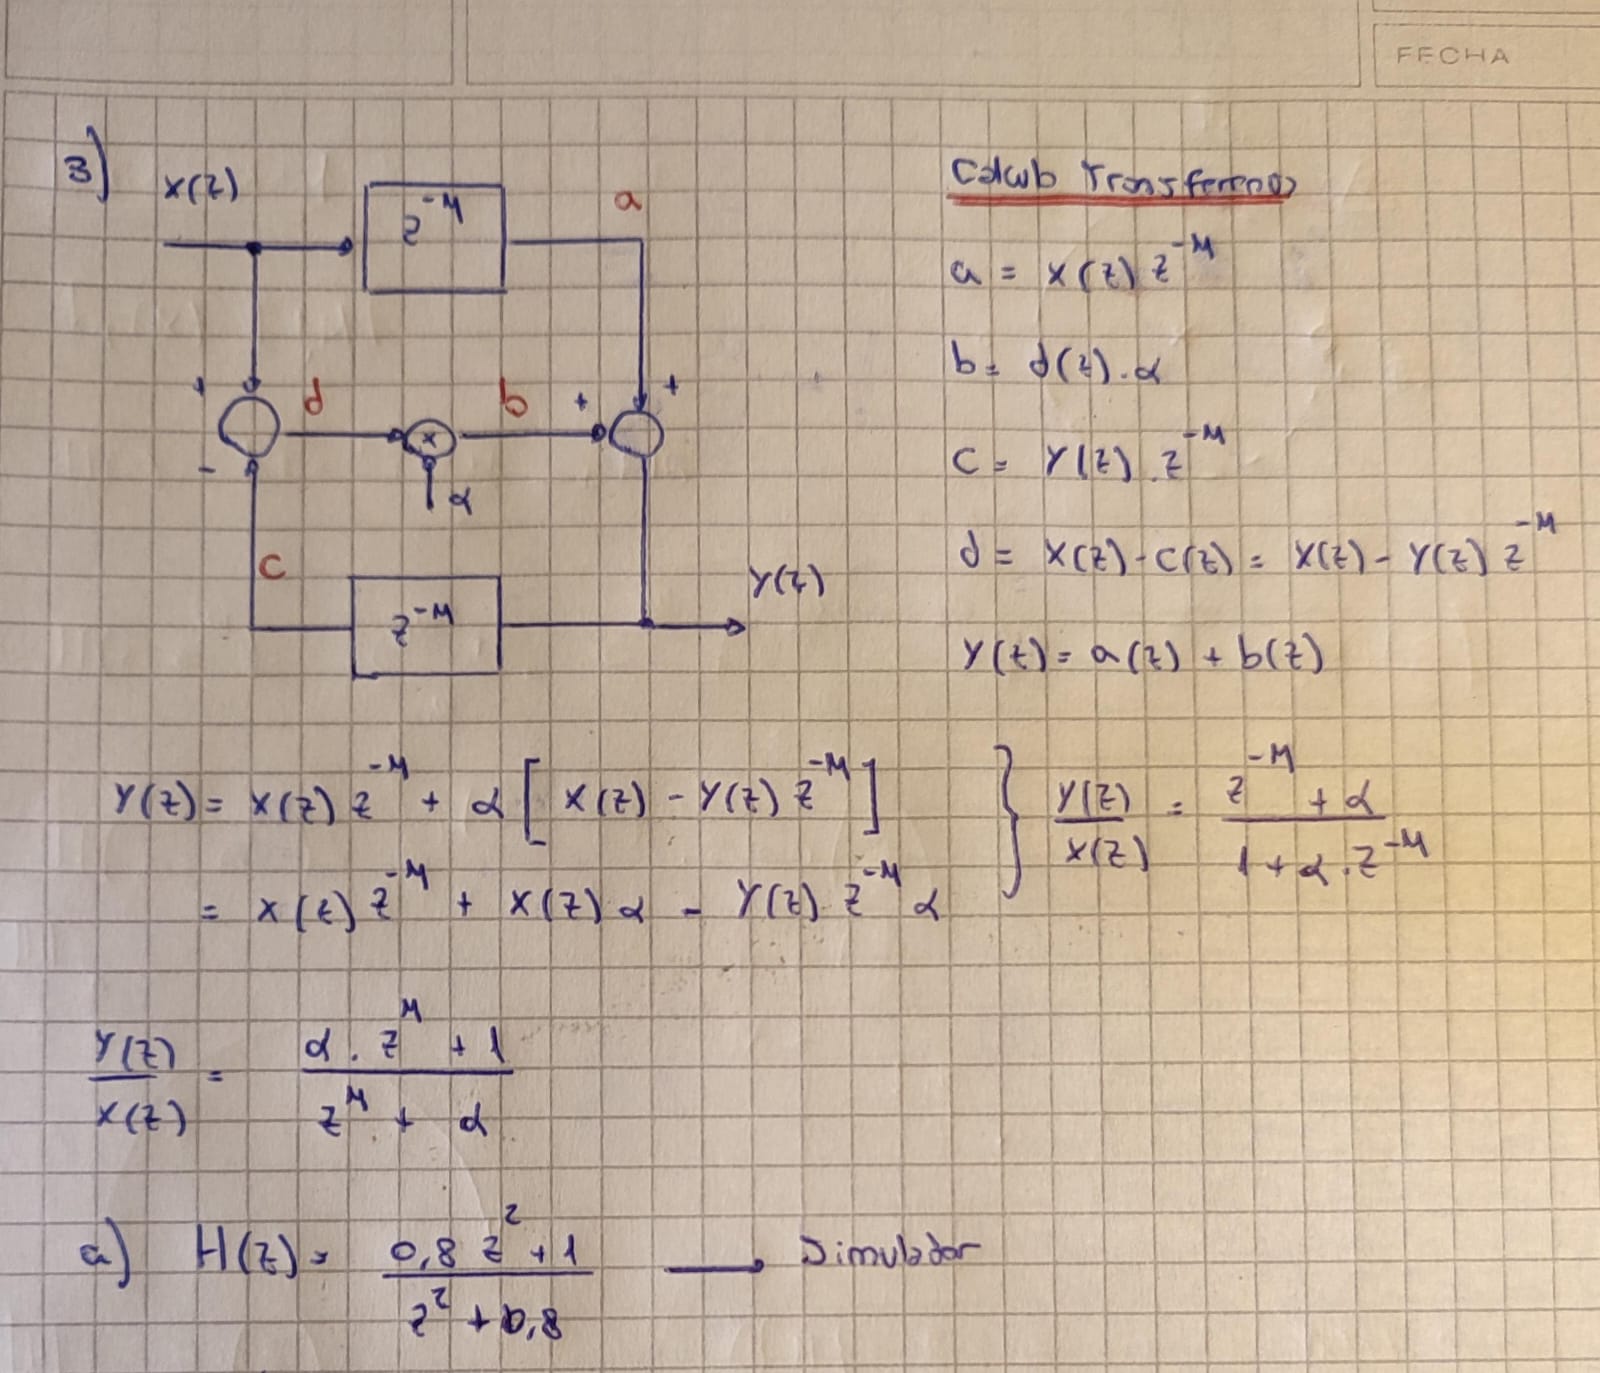 FECHA
3)
X(z)
z^-M
a
Calculo Transferencia
a = X(z) z^-M
b = d(z).α
+
d
b
+
+
x
-
α
c = Y(z).z^-M
c
z^-M
Y(z)
d = X(z) - c(z) = X(z) - Y(z) z^-M
Y(z) = a(z) + b(z)
Y(z) = X(z) z^-M + α [ X(z) - Y(z) z^-M ]
= X(z) z^-M + X(z) α - Y(z) z^-M α
} Y(z)/X(z) = (z^-M + α)/(1 + α.z^-M)
Y(z)/X(z) = (α.z^M + 1)/(z^M + α)
a) H(z) = (0,8 z^2 + 1)/(z^2 + 0,8) → Simulador